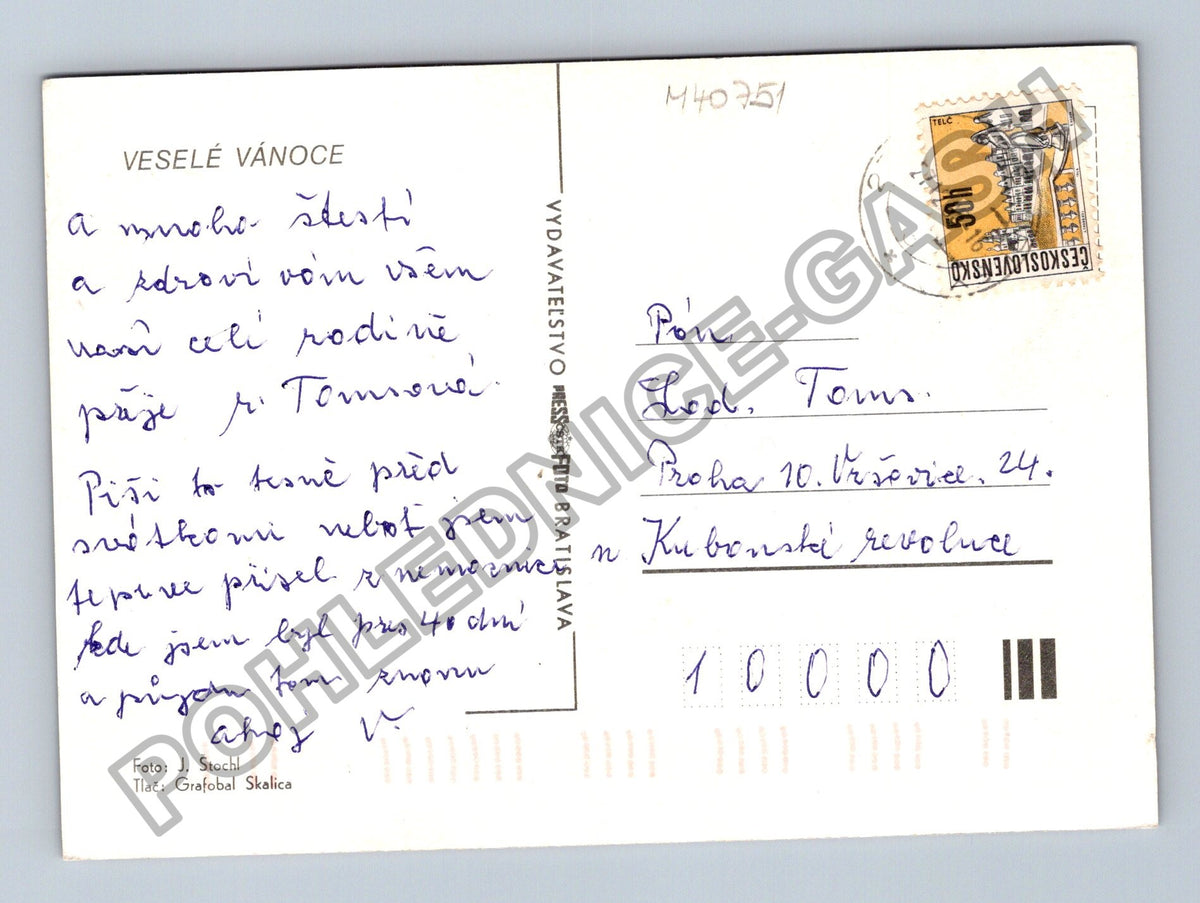 M40751
VESELÉ VÁNOCE
a mnoho štestí
a zdroví vám všem
vaší celí rodině
přeje r. Tomsová.
Píši to tesně přèd
svátkomi neboť jsem
tepuve přišel z nemocnice
kde jsem byl přes 40 dní
a půjdu tom znovu
ahoj V.
Foto: J. Štochl
Tlač: Grafobal Skalica
VYDAVATEĽSTVO PRESSFOTO BRATISLAVA
TELČ
50h
ČESKOSLOVENSKO
Pán.
Lod. Toms.
Praha 10. Vršovice. 24.
n Kubonské revoluce
1 0 0 0 0
POHLEDNICE-GASH